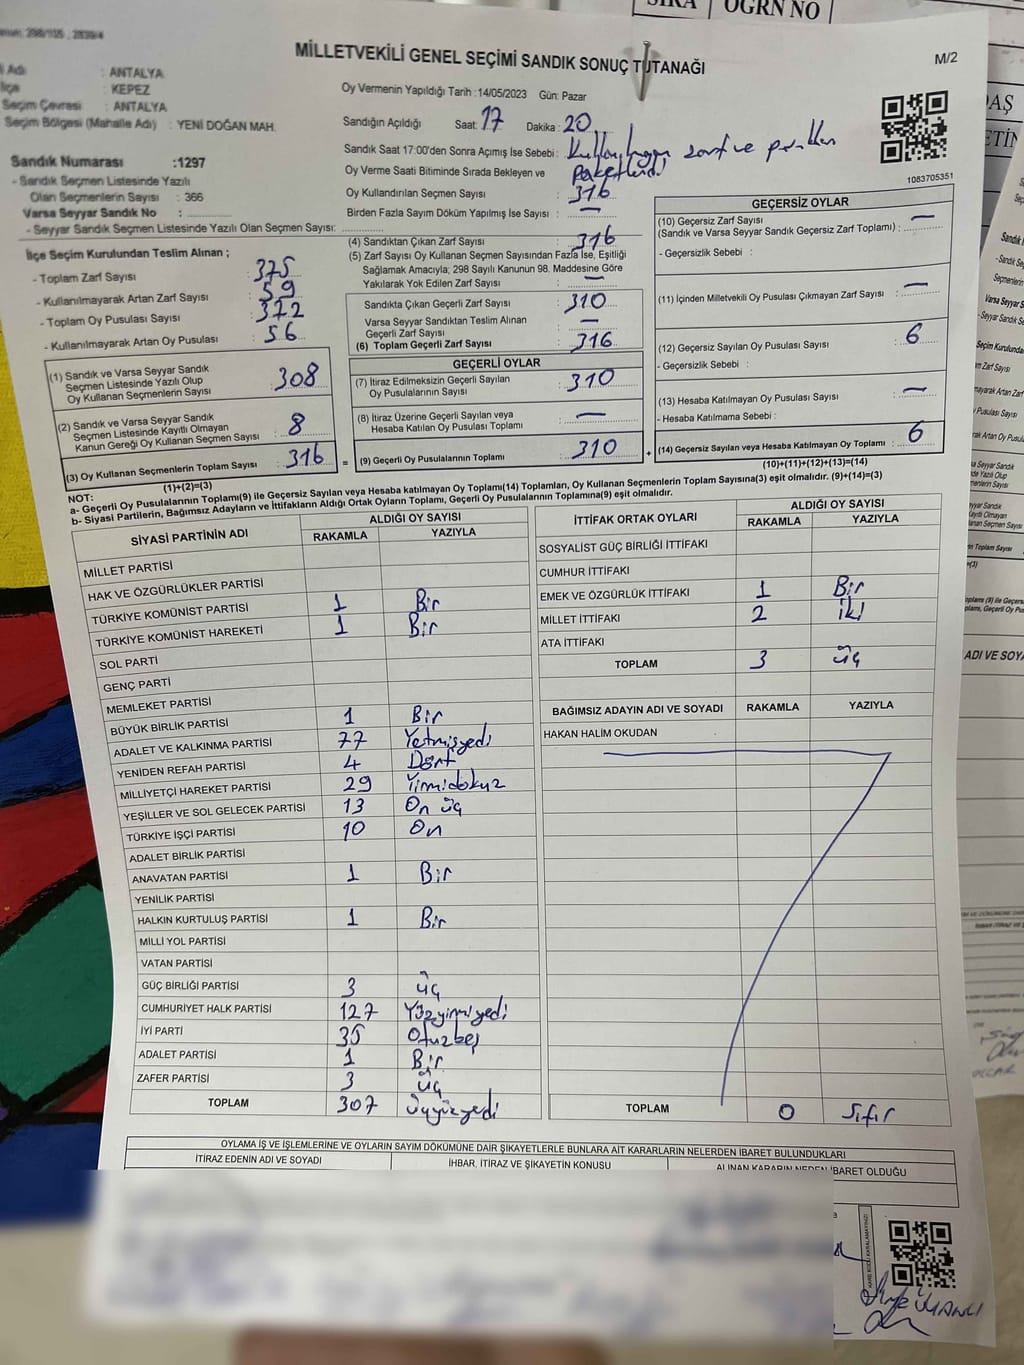 SIRA ÖĞRN NO
MİLLETVEKİLİ GENEL SEÇİMİ SANDIK SONUÇ TUTANAĞI
M/2
Adı : ANTALYA
İlçe : KEPEZ
Seçim Çevresi : ANTALYA
Seçim Bölgesi (Mahalle Adı) : YENİ DOĞAN MAH.
Sandık Numarası :1297
- Sandık Seçmen Listesinde Yazılı
Olan Seçmenlerin Sayısı : 366
Varsa Seyyar Sandık No :
- Seyyar Sandık Seçmen Listesinde Yazılı Olan Seçmen Sayısı:
Oy Vermenin Yapıldığı Tarih :14/05/2023 Gün: Pazar
Sandığın Açıldığı Saat: 17 Dakika: 20
Sandık Saat 17:00'den Sonra Açımış İse Sebebi : Kullanılmayan zarf ve pusulalar
paketlendi
Oy Verme Saati Bitiminde Sırada Bekleyen ve
Oy Kullandırılan Seçmen Sayısı 316
Birden Fazla Sayım Döküm Yapılmış İse Sayısı : —
1083705351
İlçe Seçim Kurulundan Teslim Alınan ;
- Toplam Zarf Sayısı : 375
- Kullanılmayarak Artan Zarf Sayısı : 59
- Toplam Oy Pusulası Sayısı : 372
- Kullanılmayarak Artan Oy Pusulası : 56
(1) Sandık ve Varsa Seyyar Sandık
Seçmen Listesinde Yazılı Olup
Oy Kullanan Seçmenlerin Sayısı : 308
(2) Sandık ve Varsa Seyyar Sandık
Seçmen Listesinde Kayıtlı Olmayan
Kanun Gereği Oy Kullanan Seçmen Sayısı : 8
(3) Oy Kullanan Seçmenlerin Toplam Sayısı : 316
(1)+(2)=(3)
(4) Sandıktan Çıkan Zarf Sayısı : 316
(5) Zarf Sayısı Oy Kullanan Seçmen Sayısından Fazla İse, Eşitliği
Sağlamak Amacıyla; 298 Sayılı Kanunun 98. Maddesine Göre
Yakılarak Yok Edilen Zarf Sayısı : —
Sandıkta Çıkan Geçerli Zarf Sayısı : 310
Varsa Seyyar Sandıktan Teslim Alınan
Geçerli Zarf Sayısı : —
(6) Toplam Geçerli Zarf Sayısı : 316
GEÇERLİ OYLAR
(7) İtiraz Edilmeksizin Geçerli Sayılan
Oy Pusulalarının Sayısı : 310
(8) İtiraz Üzerine Geçerli Sayılan veya
Hesaba Katılan Oy Pusulası Toplamı : —
= (9) Geçerli Oy Pusulalarının Toplamı : 310
GEÇERSİZ OYLAR
(10) Geçersiz Zarf Sayısı : —
(Sandık ve Varsa Seyyar Sandık Geçersiz Zarf Toplamı) :
- Geçersizlik Sebebi :
(11) İçinden Milletvekili Oy Pusulası Çıkmayan Zarf Sayısı : —
(12) Geçersiz Sayılan Oy Pusulası Sayısı : 6
- Geçersizlik Sebebi :
(13) Hesaba Katılmayan Oy Pusulası Sayısı : —
- Hesaba Katılmama Sebebi :
+ (14) Geçersiz Sayılan veya Hesaba Katılmayan Oy Toplamı : 6
(10)+(11)+(12)+(13)=(14)
NOT:
a- Geçerli Oy Pusulalarının Toplamı(9) ile Geçersiz Sayılan veya Hesaba katılmayan Oy Toplamı(14) Toplamları, Oy Kullanan Seçmenlerin Toplam Sayısına(3) eşit olmalıdır. (9)+(14)=(3)
b- Siyasi Partilerin, Bağımsız Adayların ve İttifakların Aldığı Ortak Oyların Toplamı, Geçerli Oy Pusulalarının Toplamına(9) eşit olmalıdır.
SİYASİ PARTİNİN ADI ALDIĞI OY SAYISI
RAKAMLA YAZIYLA
MİLLET PARTİSİ
HAK VE ÖZGÜRLÜKLER PARTİSİ
TÜRKİYE KOMÜNİST PARTİSİ 1 Bir
TÜRKİYE KOMÜNİST HAREKETİ 1 Bir
SOL PARTİ
GENÇ PARTİ
MEMLEKET PARTİSİ
BÜYÜK BİRLİK PARTİSİ 1 Bir
ADALET VE KALKINMA PARTİSİ 77 Yetmişyedi
YENİDEN REFAH PARTİSİ 4 Dört
MİLLİYETÇİ HAREKET PARTİSİ 29 Yirmidokuz
YEŞİLLER VE SOL GELECEK PARTİSİ 13 On üç
TÜRKİYE İŞÇİ PARTİSİ 10 On
ADALET BİRLİK PARTİSİ
ANAVATAN PARTİSİ 1 Bir
YENİLİK PARTİSİ
HALKIN KURTULUŞ PARTİSİ 1 Bir
MİLLİ YOL PARTİSİ
VATAN PARTİSİ
GÜÇ BİRLİĞİ PARTİSİ 3 üç
CUMHURİYET HALK PARTİSİ 127 Yüzyirmiyedi
İYİ PARTİ 35 Otuzbeş
ADALET PARTİSİ 1 Bir
ZAFER PARTİSİ 3 üç
TOPLAM 307 üçyüzyedi
İTTİFAK ORTAK OYLARI ALDIĞI OY SAYISI
RAKAMLA YAZIYLA
SOSYALİST GÜÇ BİRLİĞİ İTTİFAKI
CUMHUR İTTİFAKI
EMEK VE ÖZGÜRLÜK İTTİFAKI 1 Bir
MİLLET İTTİFAKI 2 iki
ATA İTTİFAKI
TOPLAM 3 üç
BAĞIMSIZ ADAYIN ADI VE SOYADI RAKAMLA YAZIYLA
HAKAN HALİM OKUDAN
TOPLAM 0 Sıfır
OYLAMA İŞ VE İŞLEMLERİNE VE OYLARIN SAYIM DÖKÜMÜNE DAİR ŞİKAYETLERLE BUNLARA AİT KARARLARIN NELERDEN İBARET BULUNDUKLARI
İTİRAZ EDENİN ADI VE SOYADI İHBAR, İTİRAZ VE ŞİKAYETİN KONUSU ALINAN KARARIN NEDEN İBARET OLDUĞU